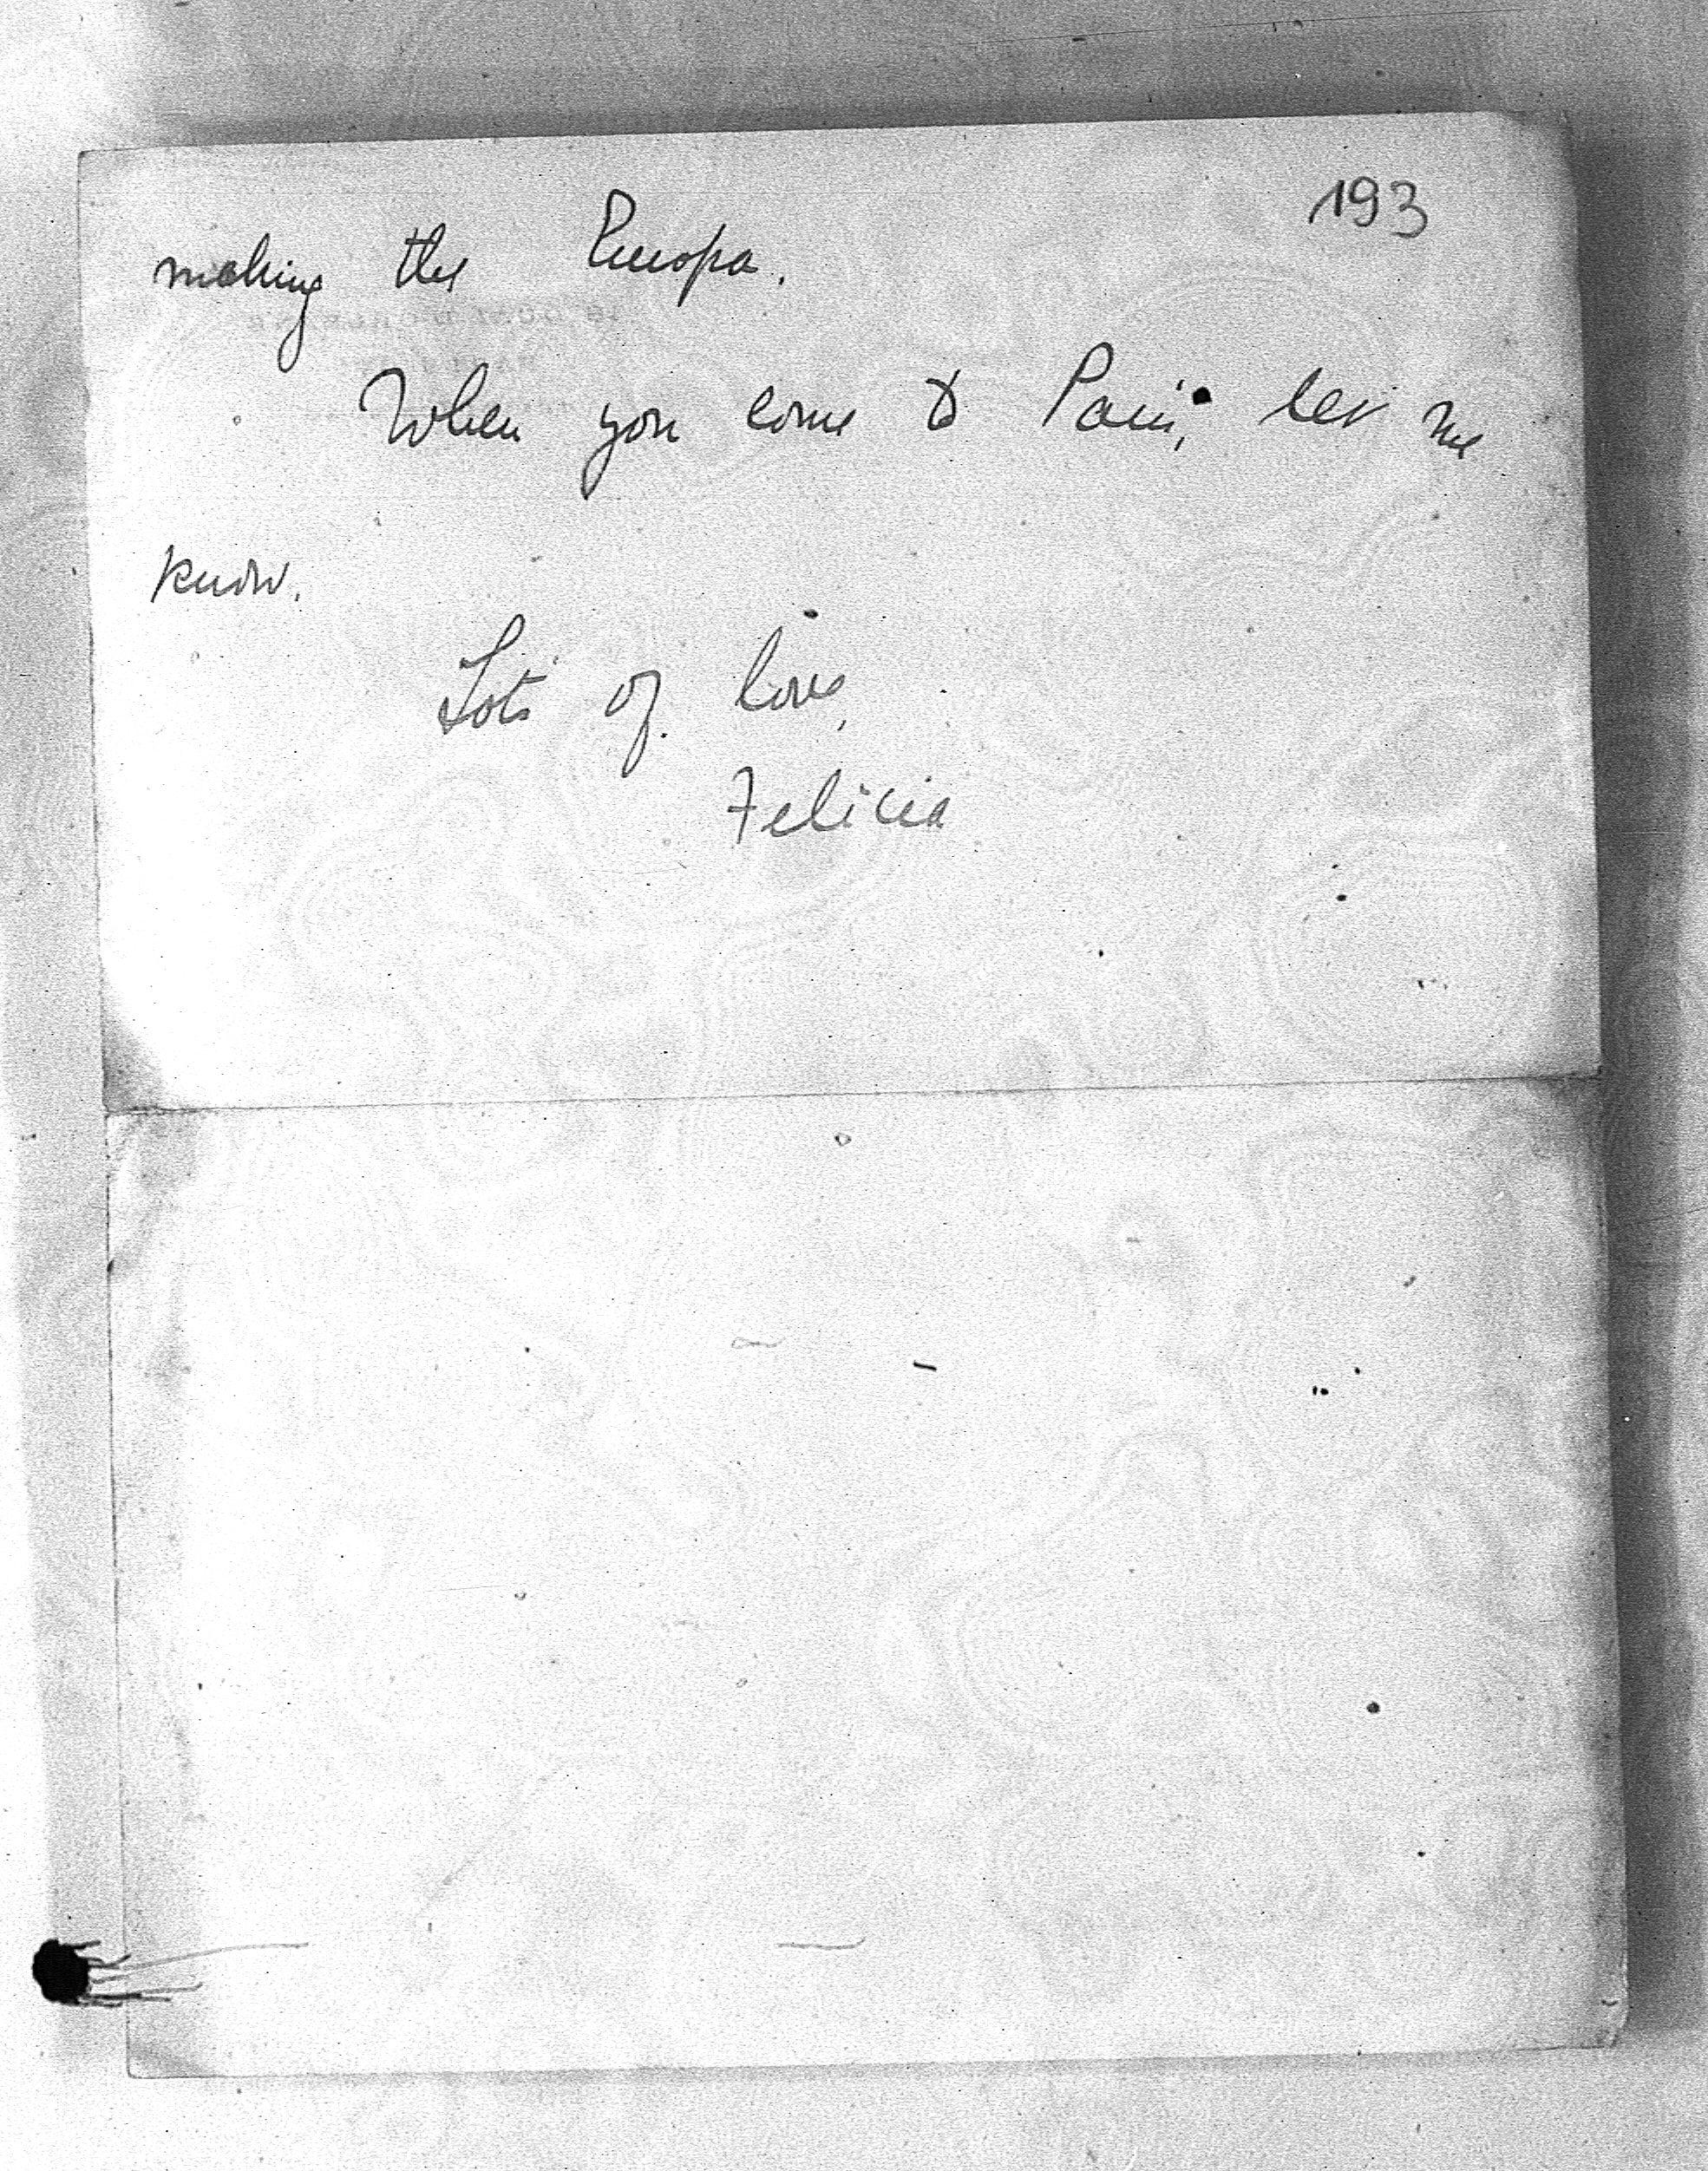 193
making the Europa.
When you come to Paris, let me
know.
Lots of love,
Felicia